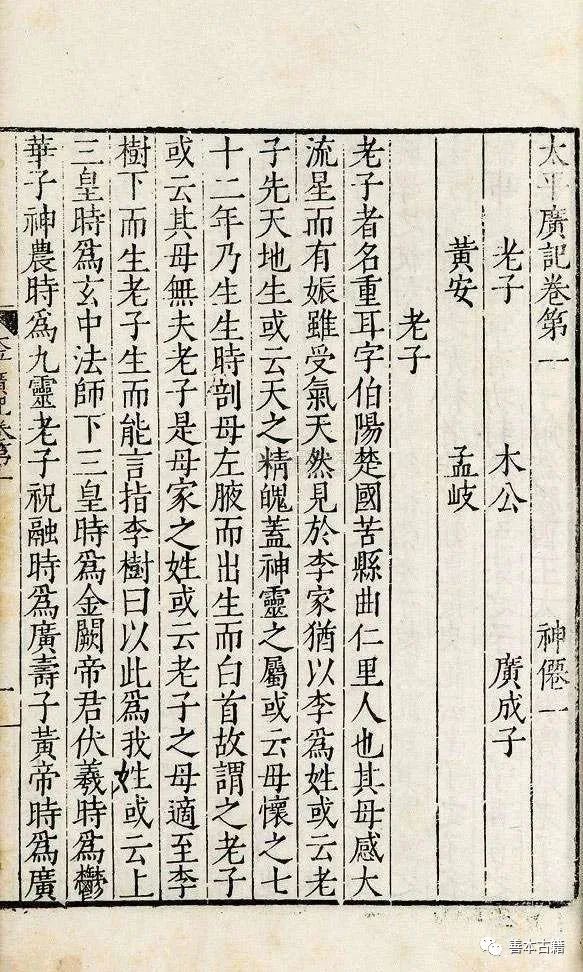 太平廣記卷第一 神僊一
老子 木公 廣成子
黃安 孟岐
老子
老子者名重耳字伯陽楚國苦縣曲仁里人也其母感大
流星而有娠雖受氣天然見於李家猶以李爲姓或云老
子先天地生或云天之精魄蓋神靈之屬或云母懷之七
十二年乃生生時剖母左腋而出生而白首故謂之老子
或云其母無夫老子是母家之姓或云老子之母適至李
樹下而生老子生而能言指李樹曰以此爲我姓或云上
三皇時爲玄中法師下三皇時爲金闕帝君伏羲時爲鬱
華子神農時爲九靈老子祝融時爲廣壽子黃帝時爲廣
廣記卷第一
一
善本古籍